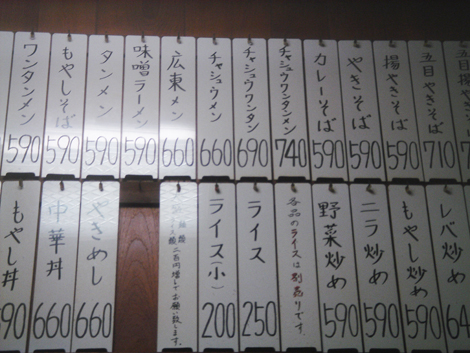 ワンタンメン
590
もやしそば
590
タンメン
590
味噌ラーメン
590
広東メン
660
チャシュウメン
660
チャシュウワンタン
690
チャシュウワンタンメン
740
カレーそば
590
やきそば
590
揚やきそば
590
五目やきそば
710
もやし丼
中華丼
660
やきめし
660
二百円増しでお願い致します。
ライス(小)
200
ライス
250
各品のライスは別売りです。
野菜炒め
590
ニラ炒め
590
もやし炒め
590
レバ炒め